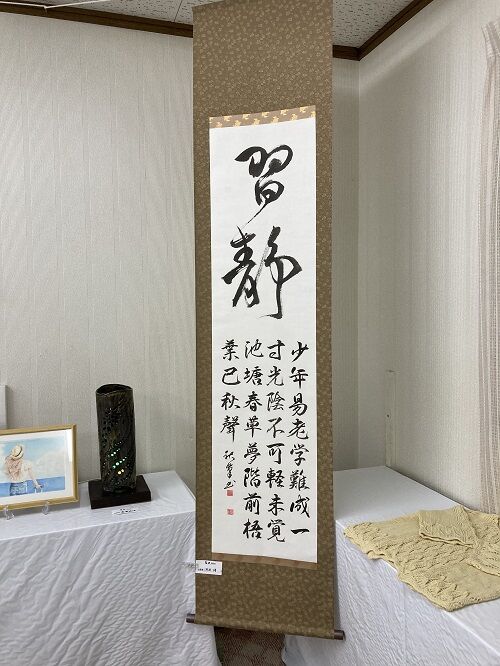 習
静
少年易老学難成一
寸光陰不可軽未覚
池塘春草夢階前梧
葉已秋聲